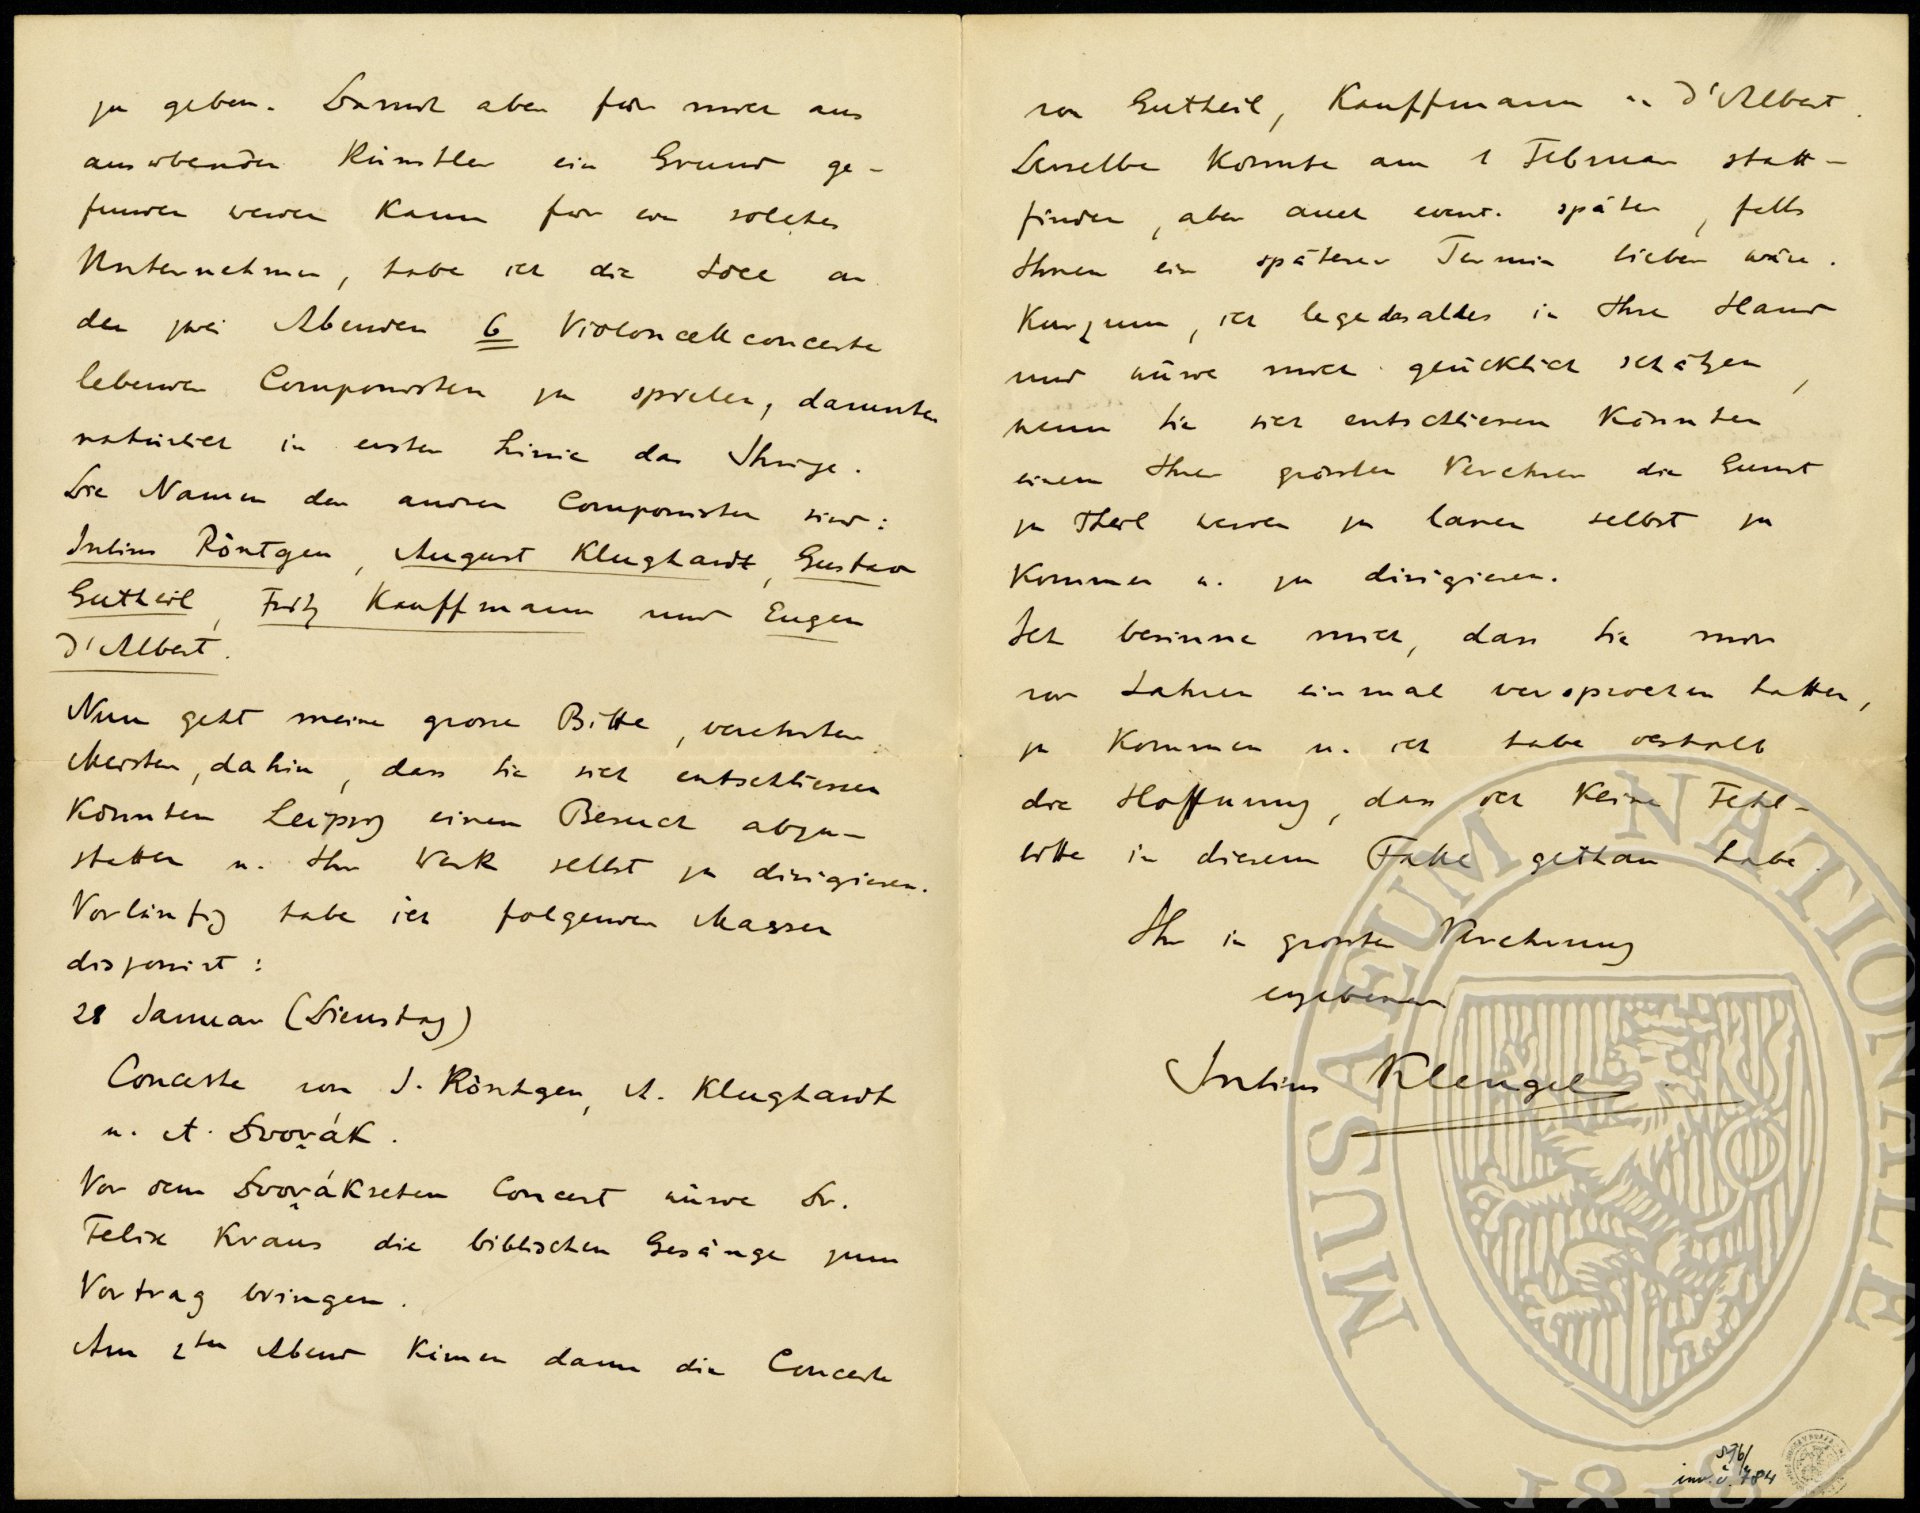 zu geben. Damit aber für mich als
ausübender Künstler ein Grund ge-
funden werden kann für ein solches
Unternehmen, habe ich die Idee an
den zwei Abenden 6 Violoncellconcerte
lebender Componisten zu spielen, darunter
natürlich in erster Linie das Ihrige.
Die Namen der andren Componisten sind:
Julius Röntgen, August Klughardt, Gustav
Gutheil, Fritz Kauffmann und Eugen
d'Albert.
Nun geht meine grosse Bitte, verehrter
Meister, dahin, dass Sie sich entschliessen
könnten Leipzig einen Besuch abzu-
statten u. Ihr Werk selbst zu dirigieren.
Vorläufig habe ich folgender Massen
disponirt:
28 Januar (Dienstag)
Concerte von J. Röntgen, A. Klughardt
u. A. Dvořák.
Vor dem Dvořákschen Concert würde Dr.
Felix Kraus die biblischen Gesänge zum
Vortrag bringen.
Am 2ten Abend kämen dann die Concerte
von Gutheil, Kauffmann u. d'Albert.
Derselbe könnte am 1 Februar statt-
finden, aber auch event. später, falls
Ihnen ein späterer Termin lieber wäre.
Kurzum, ich lege das alles in Ihre Hand
und würde mich glücklich schätzen,
wenn Sie sich entschliessen könnten
einem Ihrer grössten Verehrer die Gunst
zu Theil werden zu lassen selbst zu
kommen u. zu dirigieren.
Ich besinne mich, dass Sie mir
vor Jahren einmal versprochen hatten,
zu kommen u. ich habe deshalb
die Hoffnung, dass ich keine Fehl-
bitte in diesem Falle gethan habe.
Ihr in grösster Verehrung
ergebener
Julius Klengel
MUSAEUM NATIONALE
1818
S76/
inv. č. 784